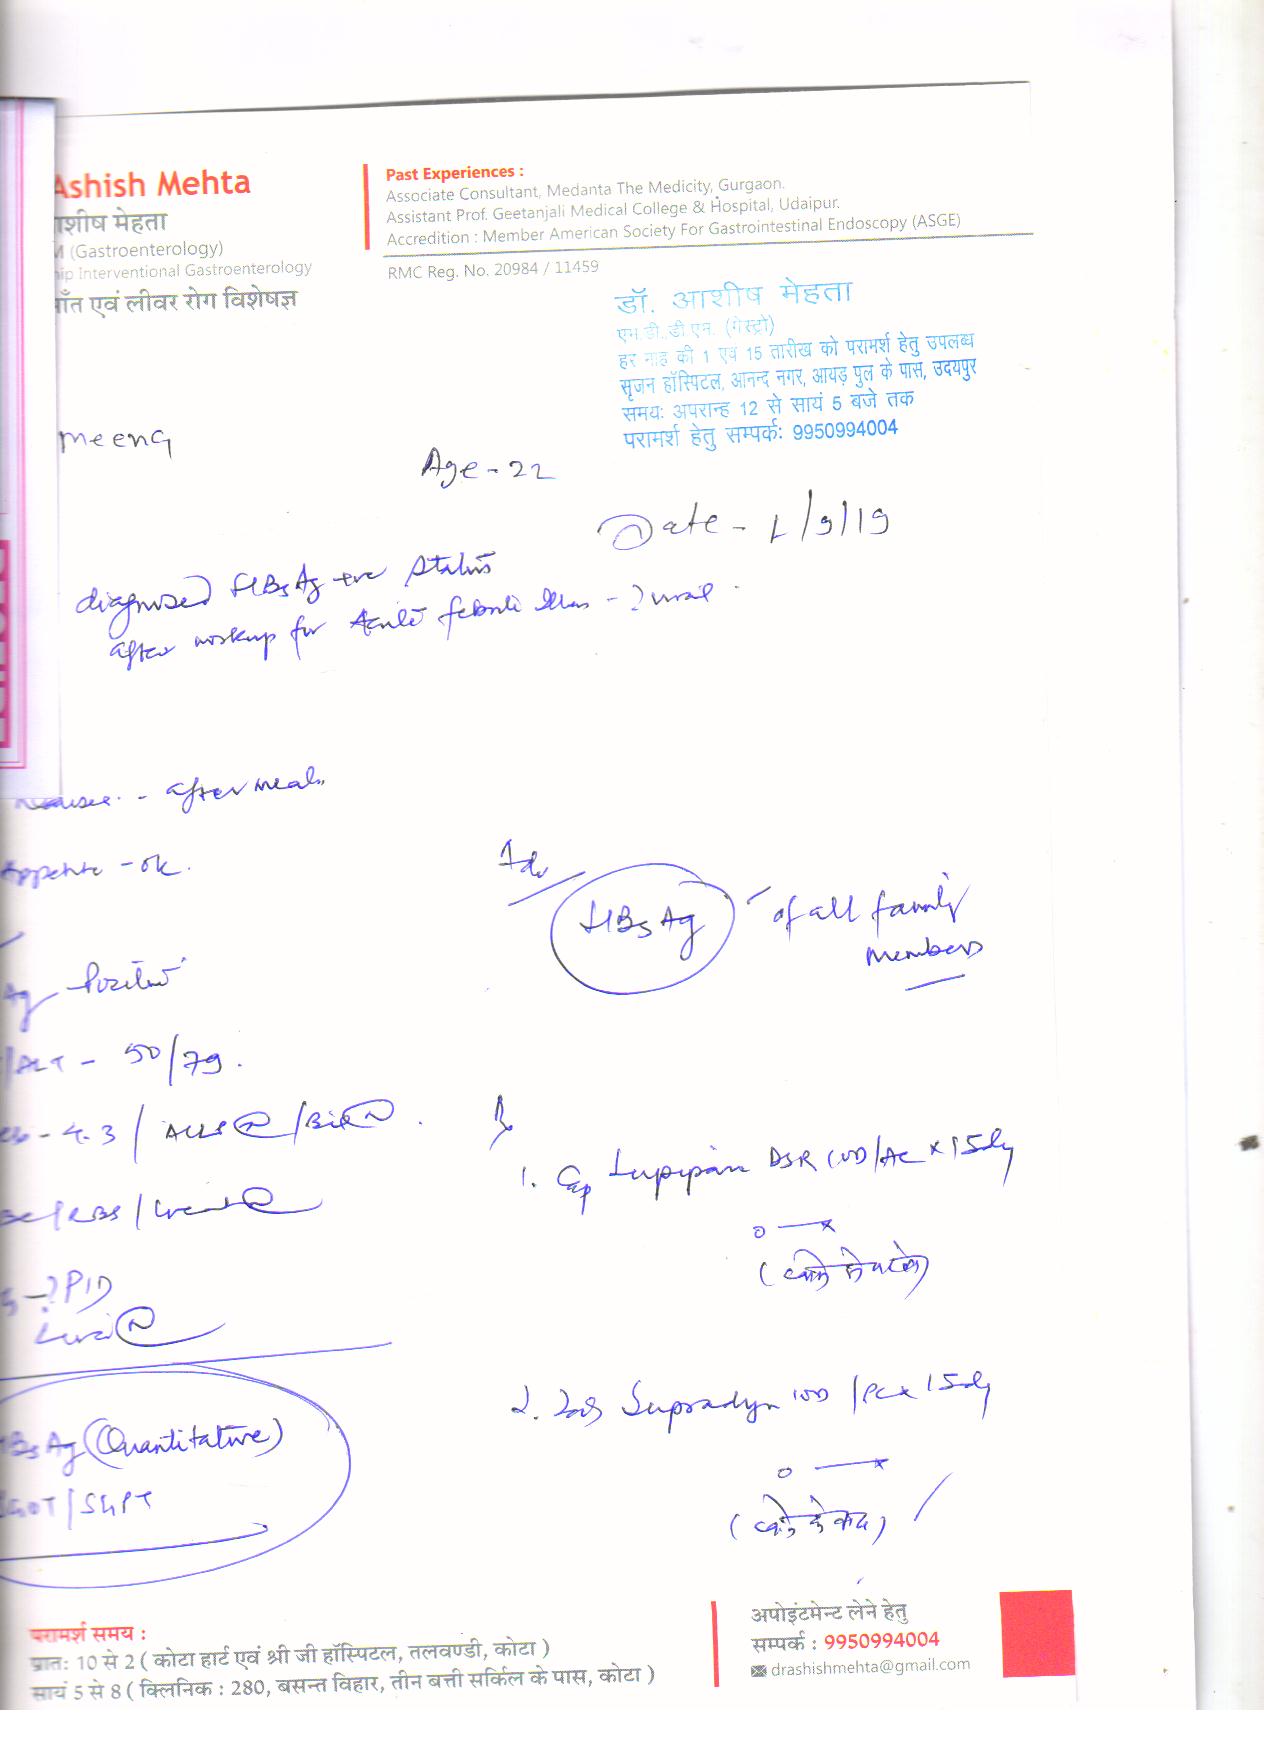 Ashish Mehta
ाशीष मेहता
M (Gastroenterology)
hip Interventional Gastroenterology
आँत एवं लीवर रोग विशेषज्ञ
Past Experiences :
Associate Consultant, Medanta The Medicity, Gurgaon.
Assistant Prof. Geetanjali Medical College & Hospital, Udaipur.
Accredition : Member American Society For Gastrointestinal Endoscopy (ASGE)
RMC Reg. No. 20984 / 11459
डॉ. आशीष मेहता
एम.डी.,डी.एम. (गेस्ट्रो)
हर माह की 1 एवं 15 तारीख को परामर्श हेतु उपलब्ध
सृजन हॉस्पिटल, आनन्द नगर, आयड़ पुल के पास, उदयपुर
समयः अपरान्ह 12 से सायं 5 बजे तक
परामर्श हेतु सम्पर्कः 9950994004
meena
Age - 22
Date - 1/9/19
diagnosed HBsAg +ve status
after workup for Acute febrile illness - ? viral
Nausea - after meals
Appetite - ok.
Ag Positive
/ALT - 50/79.
4.3 / /Bil (N)
? PID
Liver (N)
HBsAg (Quantitative)
SGOT/SGPT
Adv
HBsAg of all family
members
1. Cap DSR 1OD/AC x 15 day
0 —x
2. Tab Supradyn 1OD /PC x 15 day
0 —x
(खाने के बाद)
परामर्श समय :
प्रातः 10 से 2 ( कोटा हार्ट एवं श्री जी हॉस्पिटल, तलवण्डी, कोटा )
सायं 5 से 8 ( क्लिनिक : 280, बसन्त विहार, तीन बत्ती सर्किल के पास, कोटा )
अपोइंटमेन्ट लेने हेतु
सम्पर्क : 9950994004
drashishmehta@gmail.com